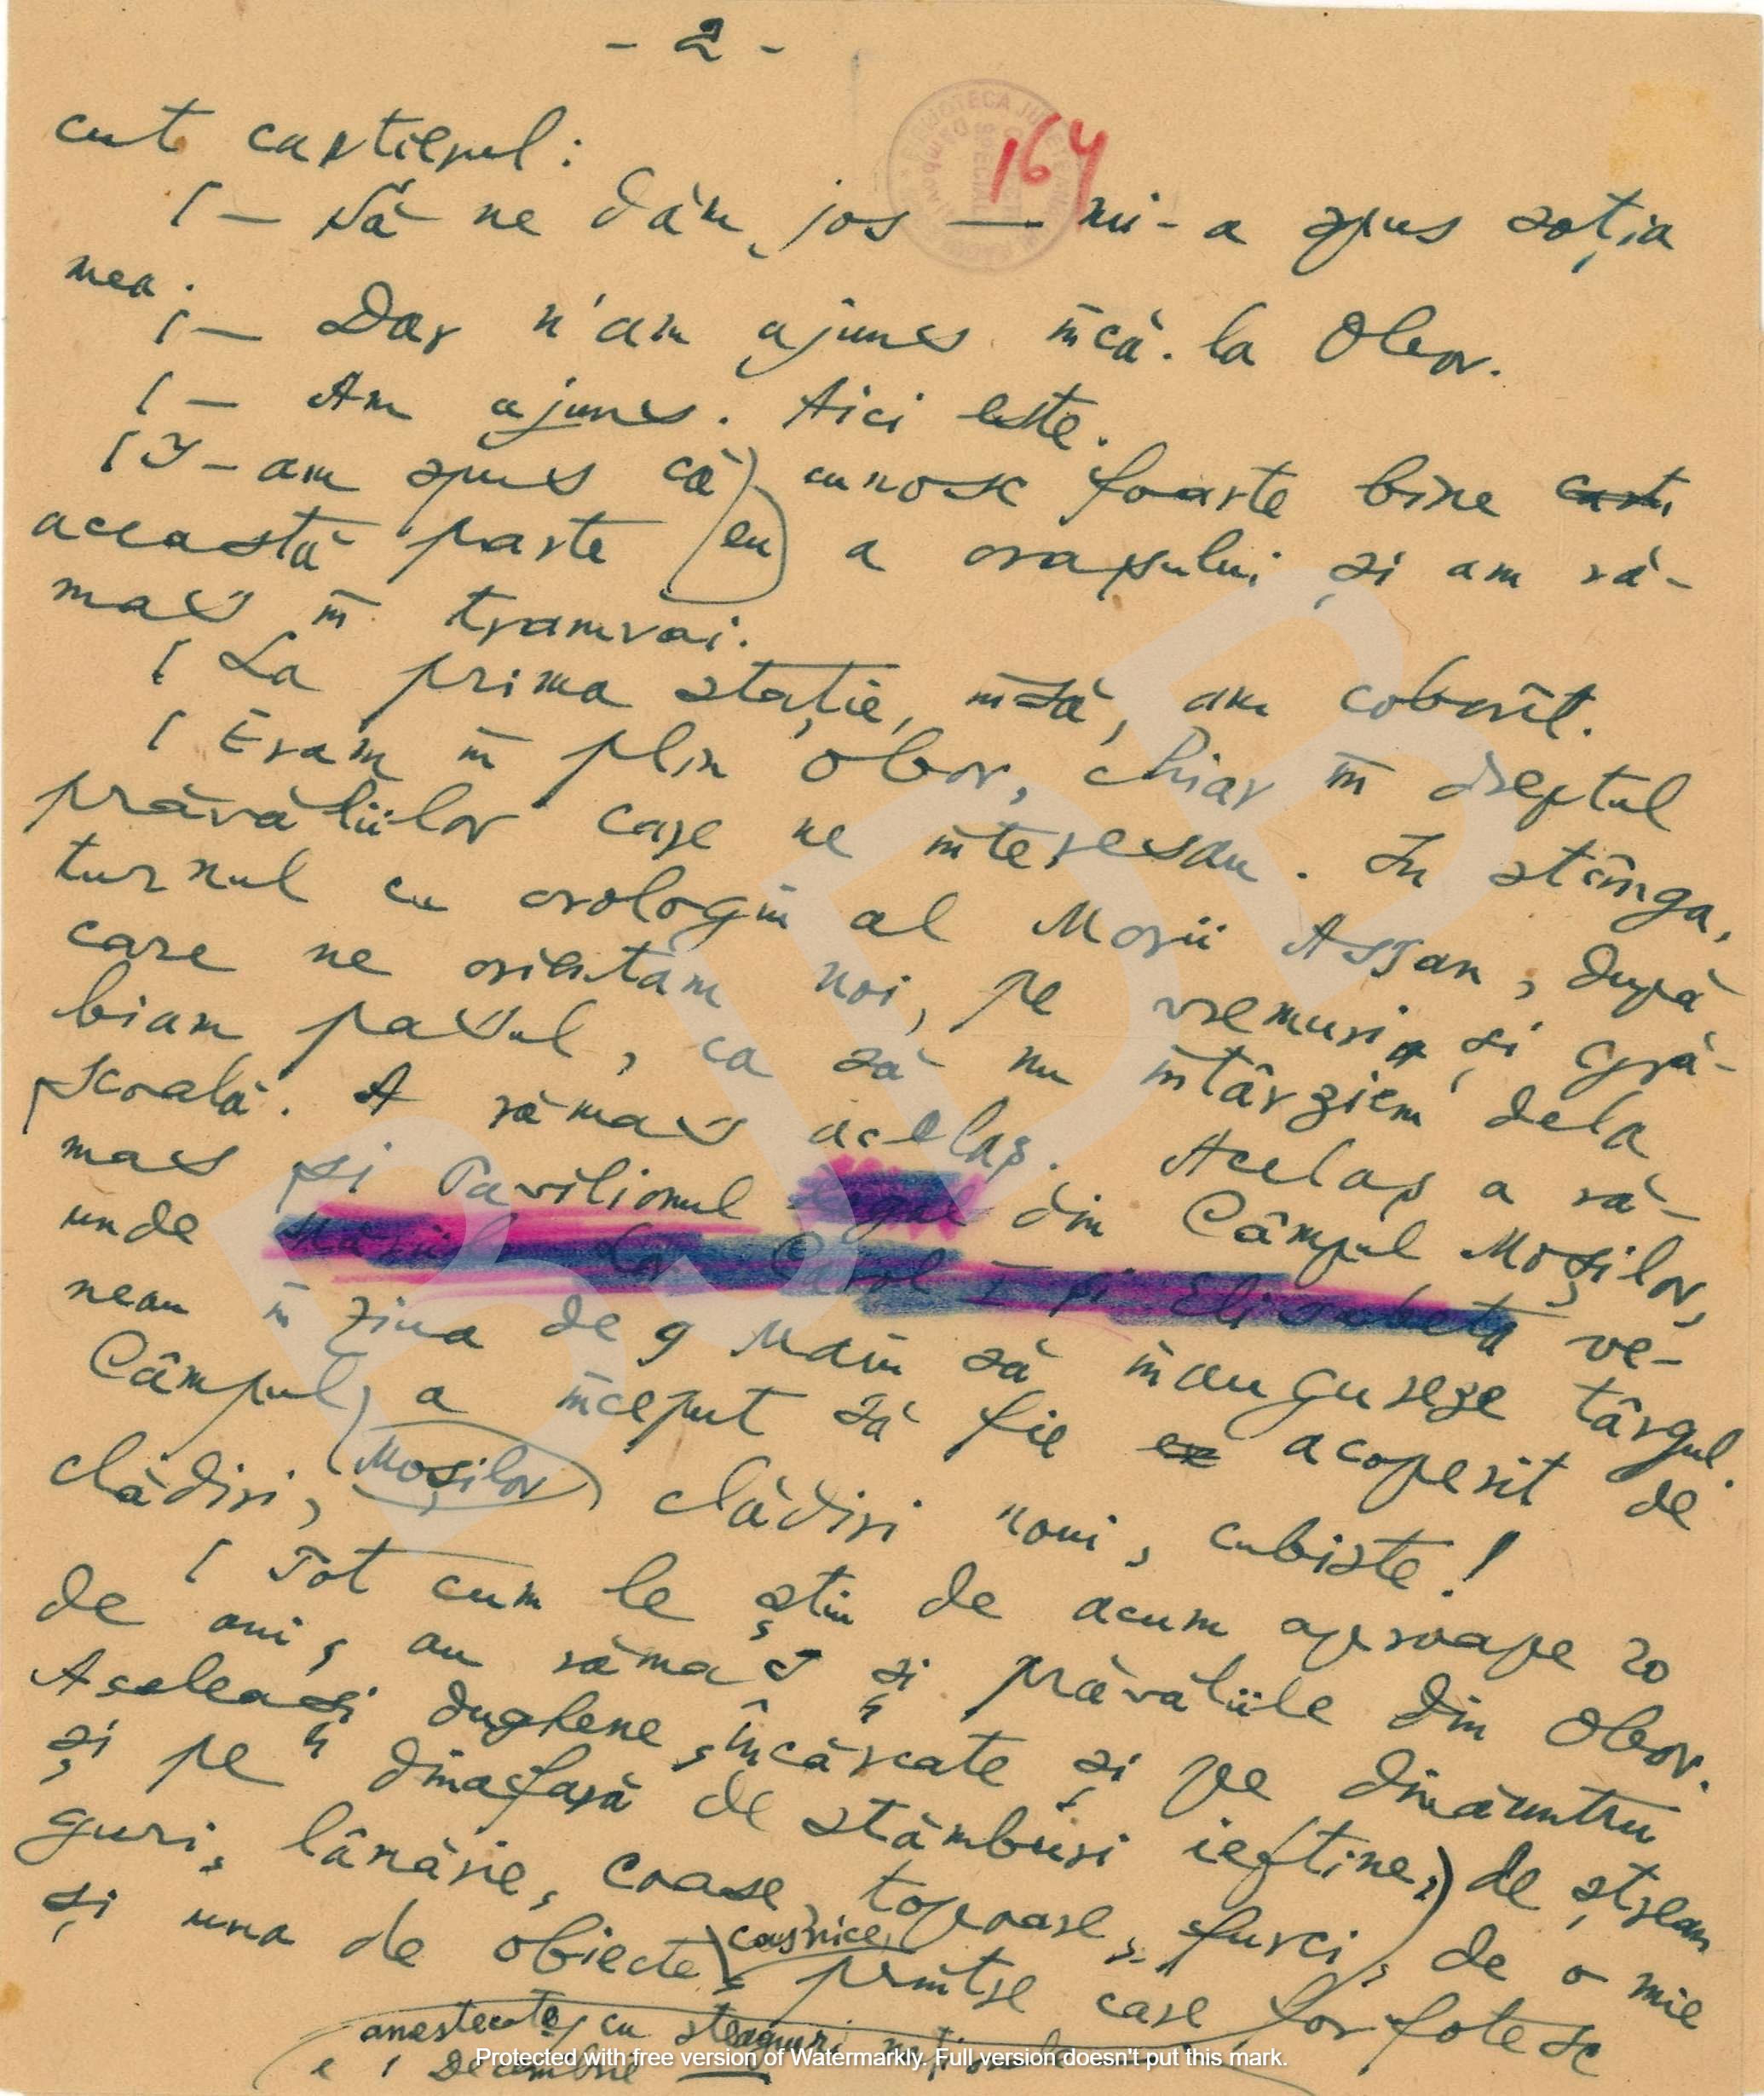 - 2 -
164
cut cartierul:
[— Să ne dăm jos — mi-a spus soția
mea.
[— Dar n'am ajuns încă la Obor.
[— Am ajuns. Aici este.
[I-am spus că eu cunosc foarte bine
această parte a orașului și am ră-
mas în tramvai.
[La prima stație, însă, am coborît.
[Eram în plin Obor, chiar în dreptul
prăvăliilor care ne interesau. In stînga,
turnul cu orologiu al Morii Assan, după
care ne orientam noi, pe vremuri, și gră-
biam pasul, ca să nu întârziem dela
școală. A rămas acelaș. Acelaș a ră-
mas și Pavilionul regal din Câmpul Moșilor,
unde Lor Carol I și Elisabeta ve-
neau în ziua de 9 Main să inaugureze târgul.
Câmpul Moșilor a început să fie acoperit de
clădiri, clădiri noui, cubiste!
[Tot cum le știu de acum aproape 20
de ani, au rămas și prăvăliile din Obor.
Aceleași dughene, încărcate și pe dinăuntru
și pe dinafară de stămburi ieftine, de ștrean
guri, lânărie, coase, topoare, furci, de o mie
și una de obiecte casnice, printre care forfotesc
amestecate cu steaguri naționale
e 1 Decembrie
Protected with free version of Watermarkly. Full version doesn't put this mark.